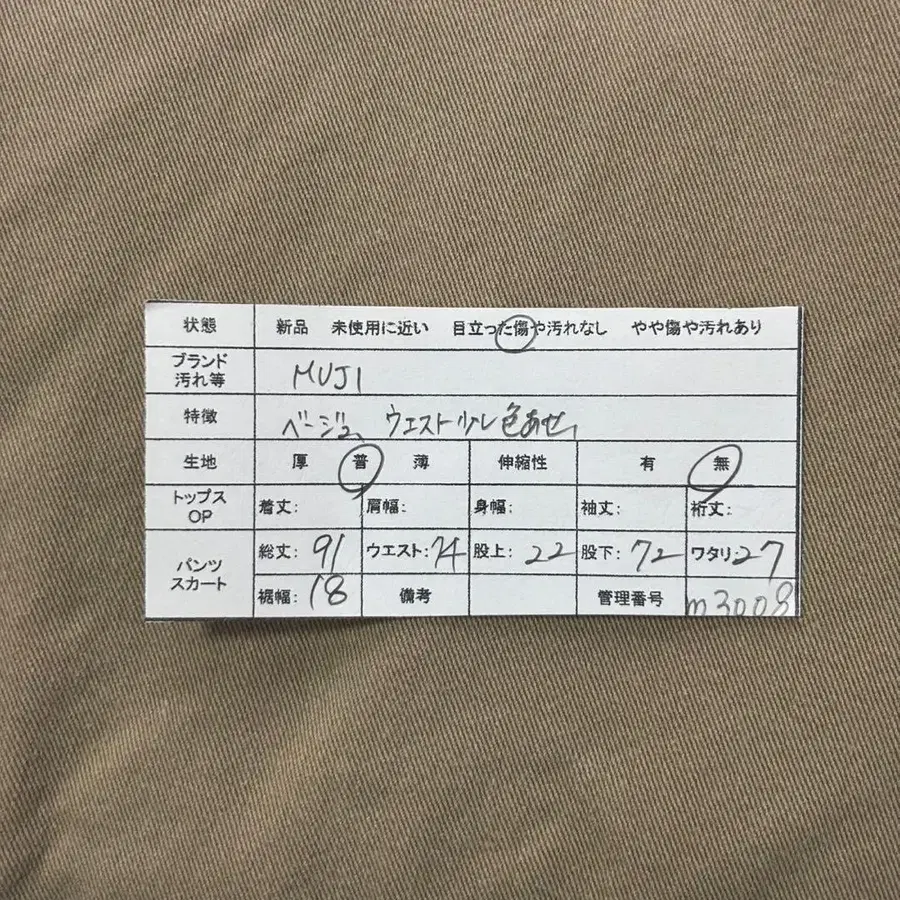 状態 新品 未使用に近い 目立った傷や汚れなし やや傷や汚れあり
ブランド
汚れ等 MUJI
特徴 ベージュ、ウエスト少し色あせ、
生地 厚 普 薄 伸縮性 有 無
トップス
OP 着丈: 肩幅: 身幅: 袖丈: 裄丈:
パンツ
スカート 総丈: 91 ウエスト: 74 股上: 22 股下: 72 ワタリ: 27
裾幅: 18 備考 管理番号 m3008